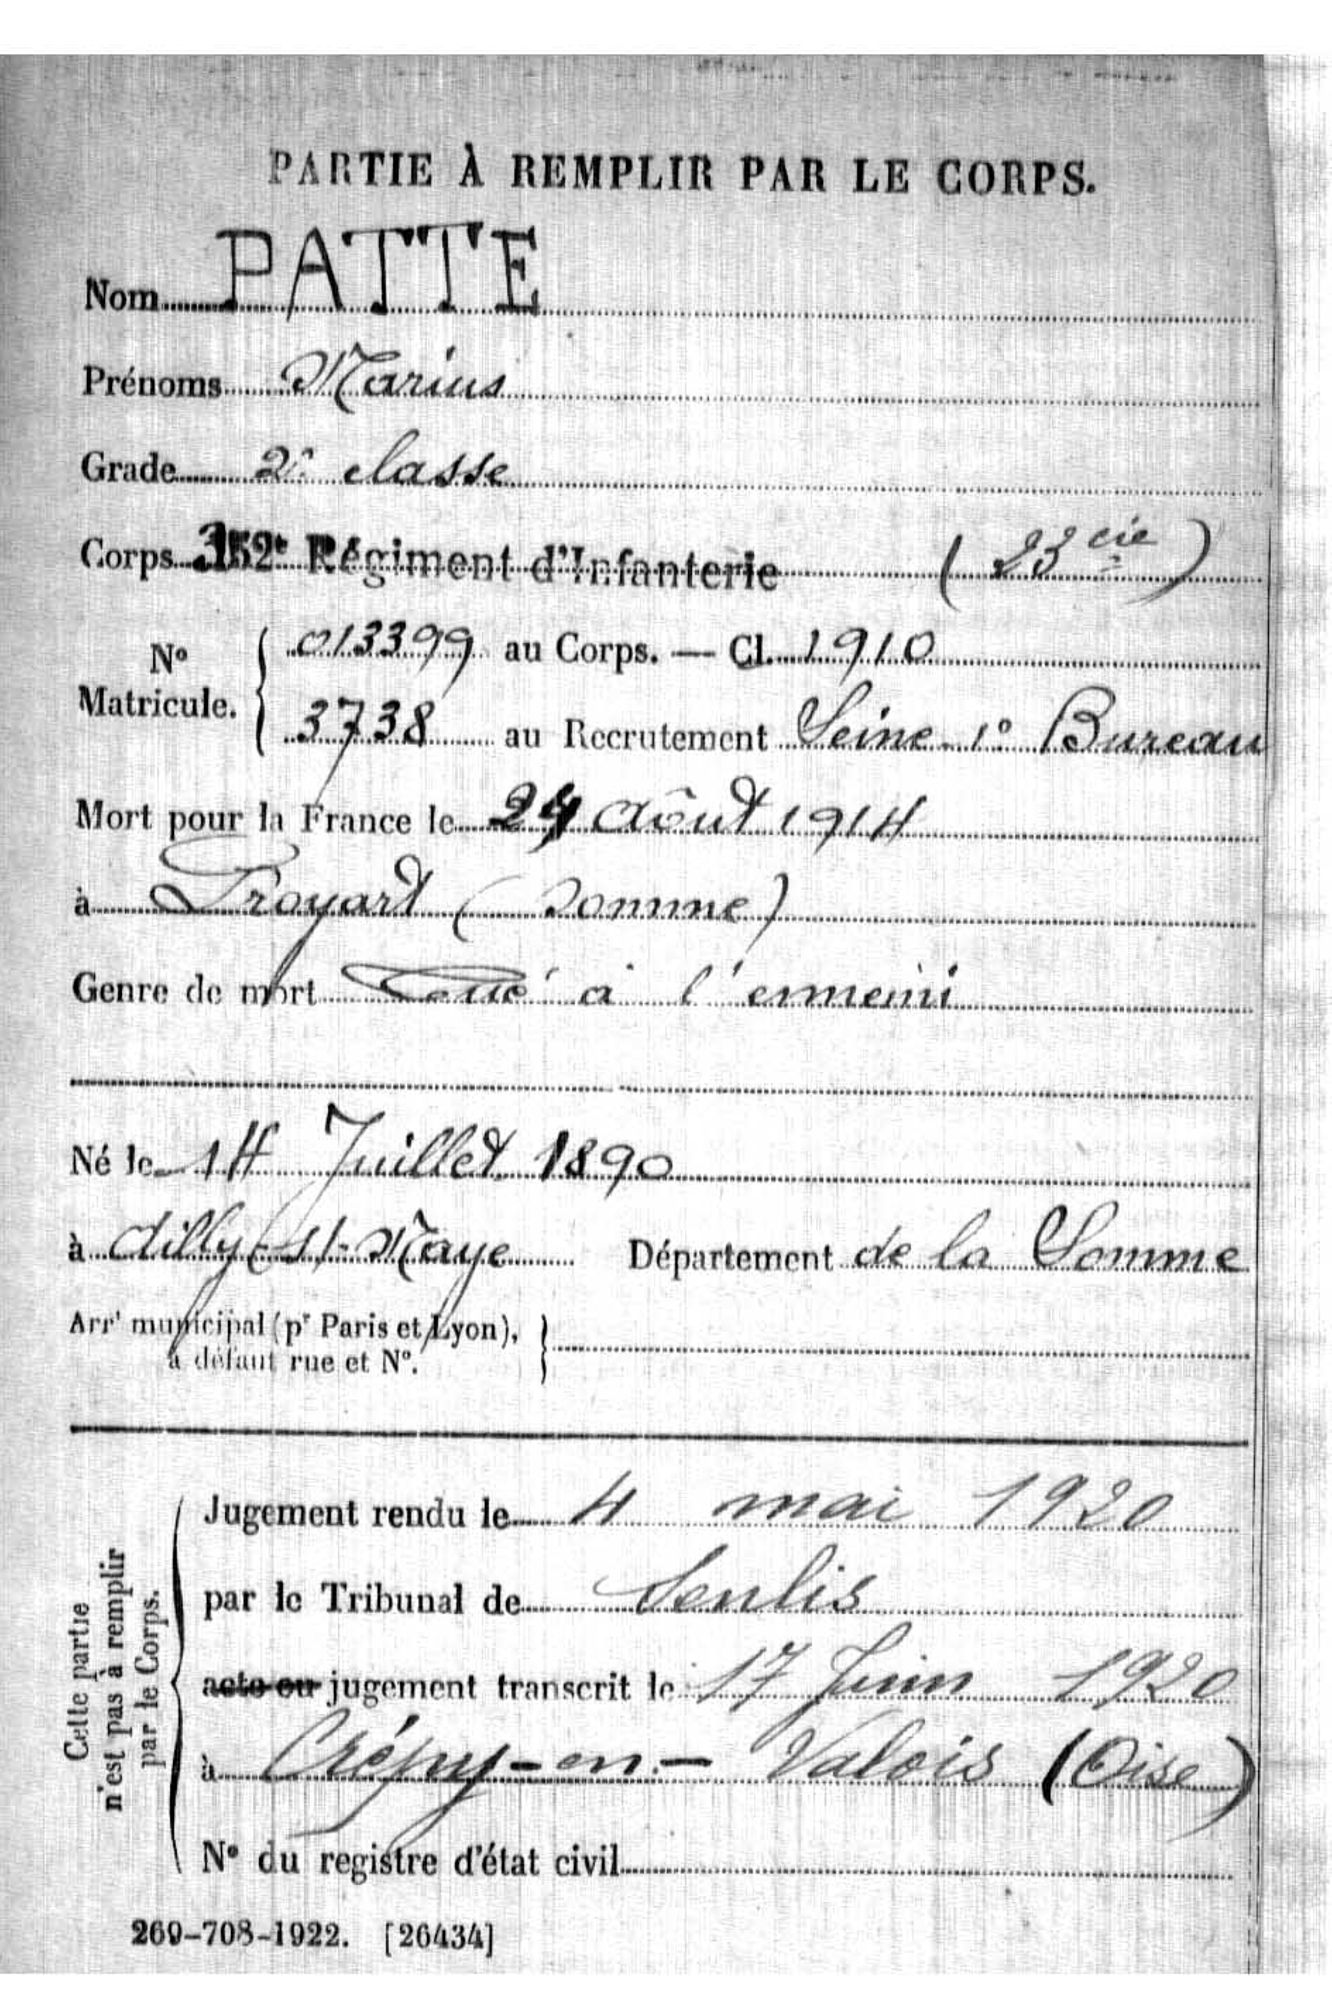 PARTIE À REMPLIR PAR LE CORPS.
Nom PATTE
Prénoms Marius
Grade 2e classe
Corps 352e Régiment d'Infanterie (23 cie)
No Matricule. { 013399 au Corps. — Cl. 1910
3738 au Recrutement Seine 1o Bureau
Mort pour la France le 24 Août 1914
à Proyart (Somme)
Genre de mort Tué à l'ennemi
Né le 14 Juillet 1890
à Ailly-s/-Noye Département de la Somme
Arrt municipal (pr Paris et Lyon),
à défaut rue et No. }
Cette partie
n'est pas à remplir
par le Corps.
Jugement rendu le 4 mai 1920
par le Tribunal de Senlis
acte ou jugement transcrit le 17 Juin 1920
à Crépy-en-Valois (Oise)
No du registre d'état civil
269-708-1922. [26434]